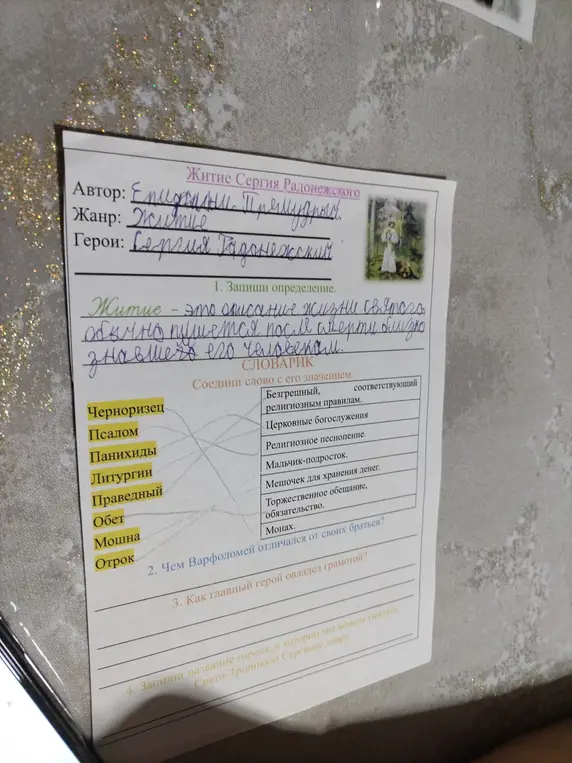 Житие Сергия Радонежского
Автор: Епифани. Премудрый.
Жанр: Житие
Герои: Сергия Радонежский
1. Запиши определение.
Житие - это описание жизни святого
обычно пишется после смерти близко
знавшего его человекам.
СЛОВАРИК
Соедини слово с его значением.
Черноризец
Псалом
Панихиды
Литургии
Праведный
Обет
Мошна
Отрок
Безгрешный, соответствующий
религиозным правилам.
Церковные богослужения
Религиозное песнопение.
Мальчик-подросток.
Мешочек для хранения денег.
Торжественное обещание,
обязательство.
Монах.
2. Чем Варфоломей отличался от своих братьев?
3. Как главный герой овладел грамотой?
4. Запиши название города, в котором мы можем увидеть
Свято-Троицкую Сергиеву лавру.